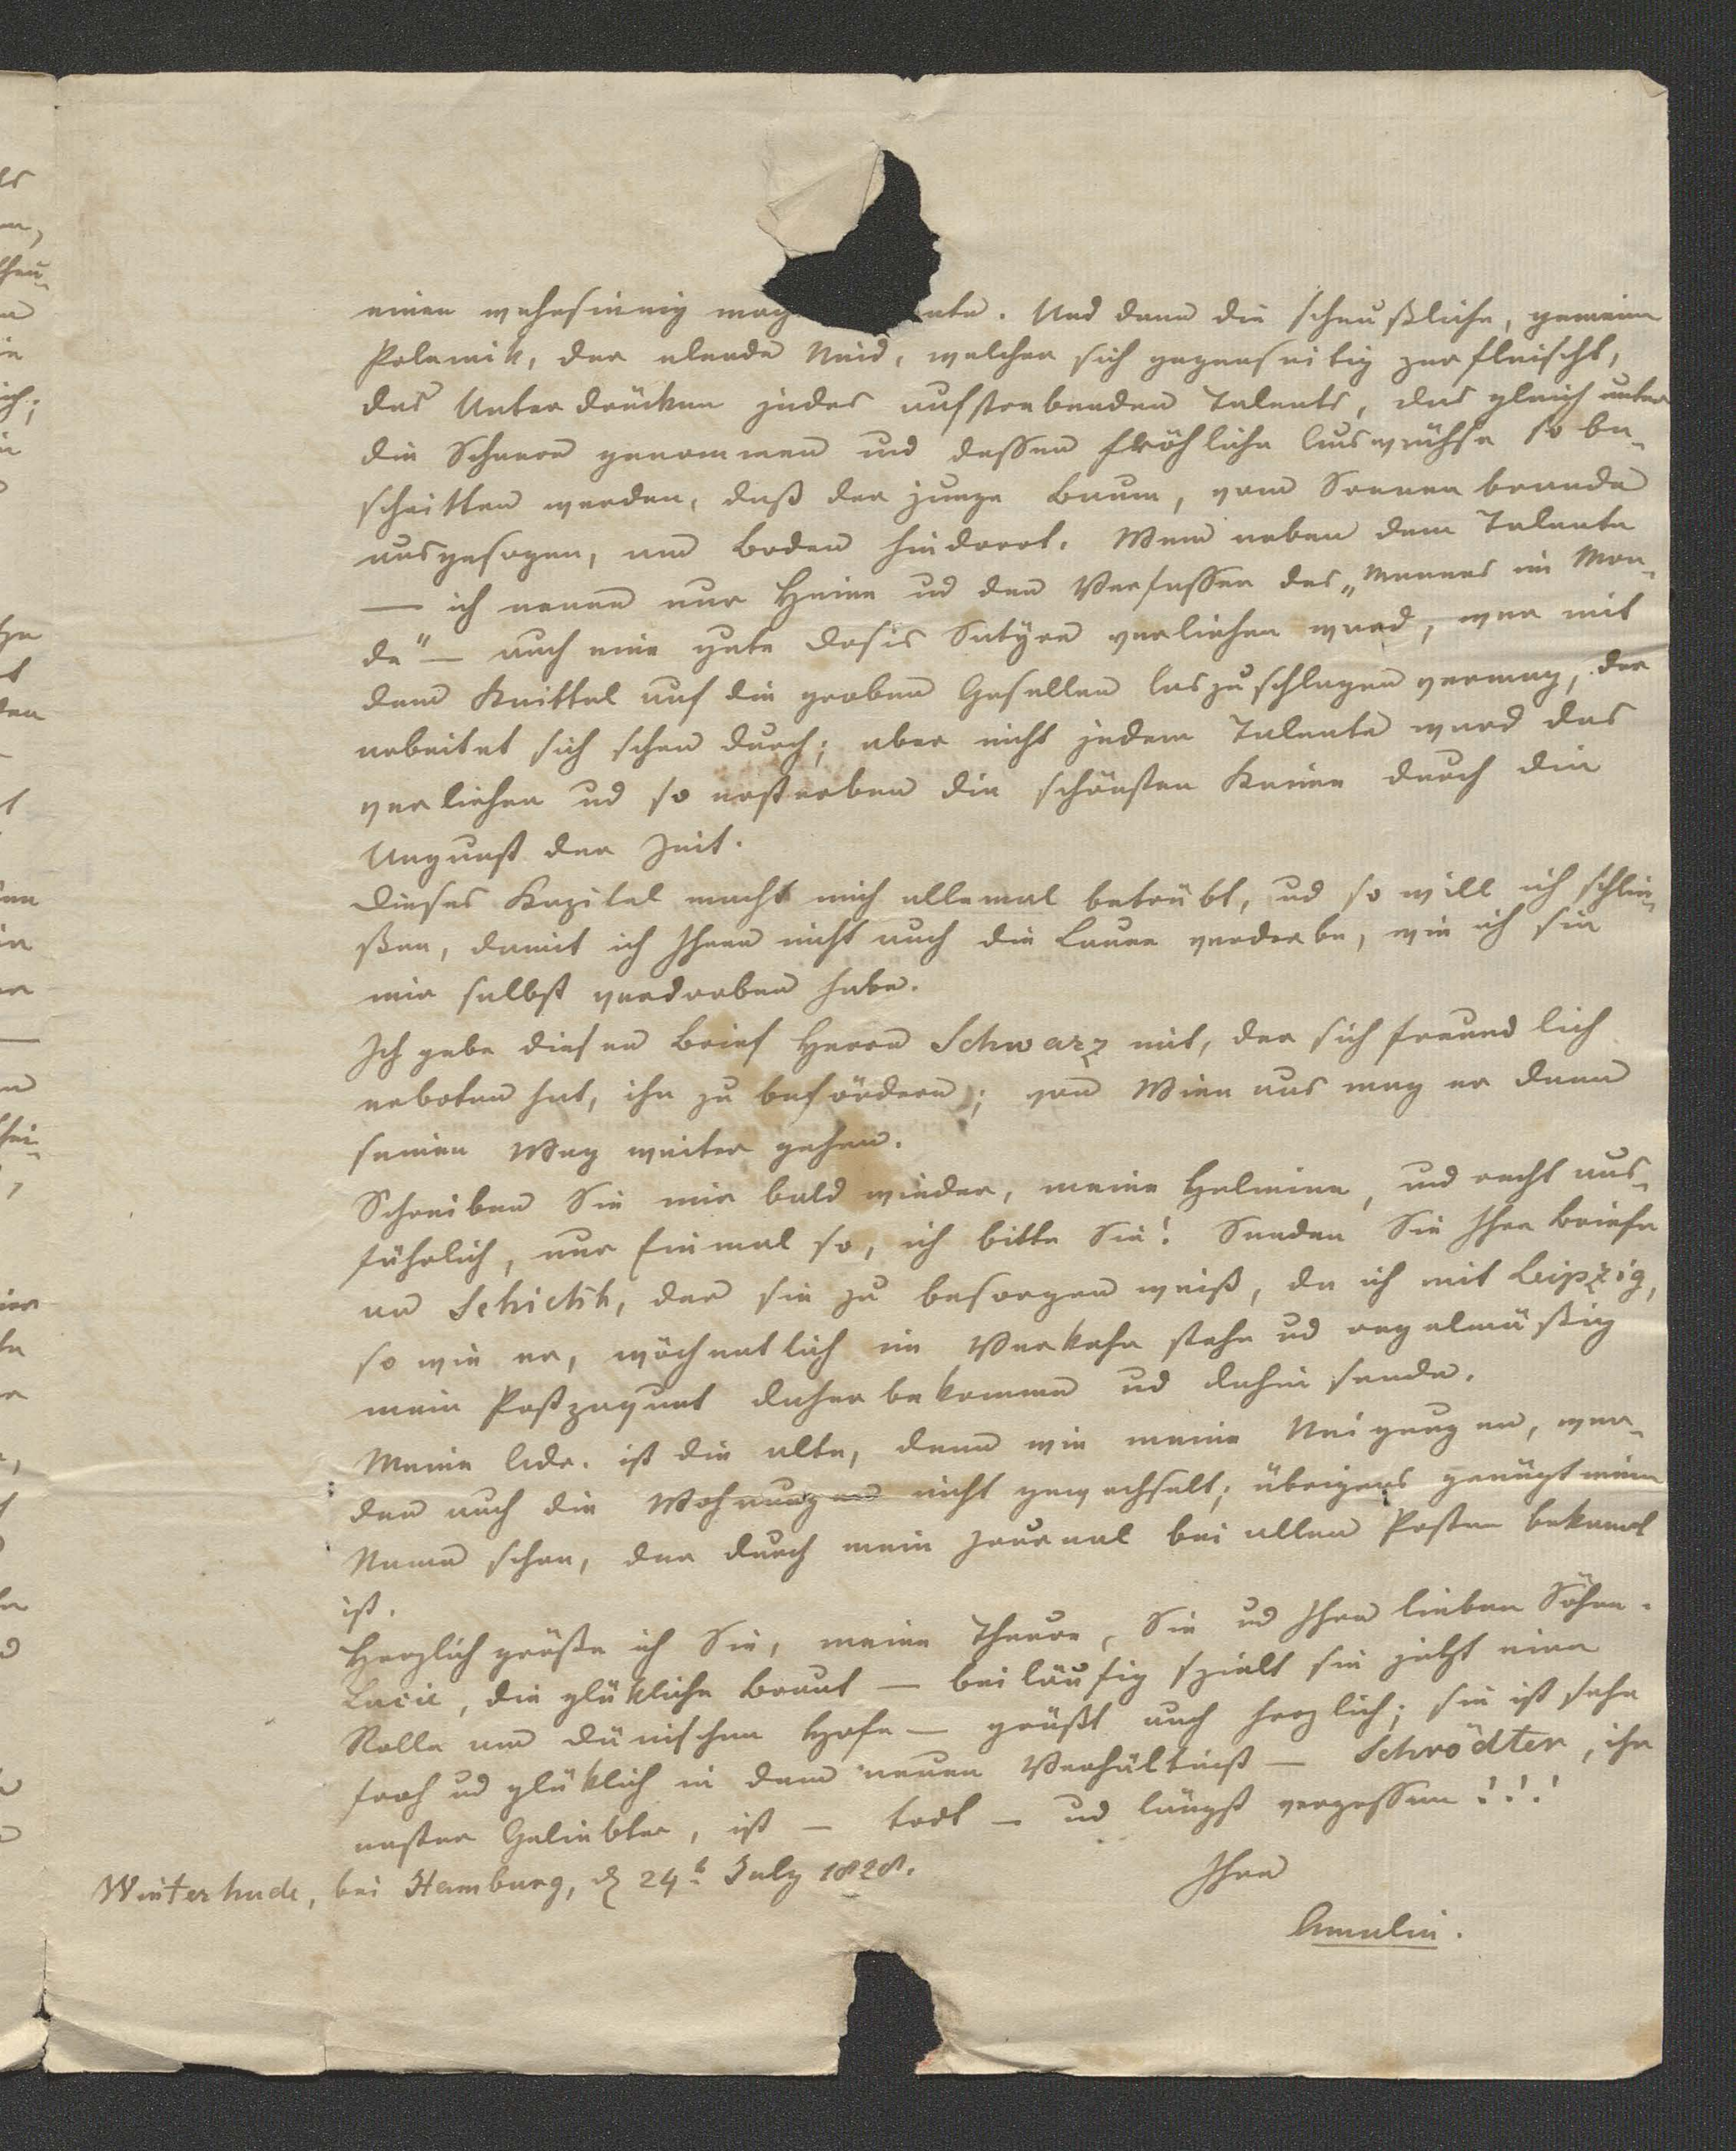 einen wahnsinnig mach nte. Und dann die scheußliche, gemeine
Polemik, der elende Neid, welcher sich gegenseitig zerfleischt,
das Unterdrücken jedes aufstrebenden Talents, das gleich unter
die Scheere genommen und dessen fröhliche Auswüchse so be-
schnitten werden, daß der junge Baum, vom Sonnenbrande
ausgesogen, am Boden hindorrt. Wem neben dem Talente
— ich nenne nur Heine ud den Verfasser des „Mannes im Mon-
de“ — auch eine gute Dosis Satyre verliehen ward, wer mit
dem Knittel auf die groben Gesellen loszuschlagen vermag, der
arbeitet sich schon durch; aber nicht jedem Talente ward das
verliehen ud so ersterben die schönsten Keime durch die
Ungunst der Zeit.
Dieses Kapitel macht mich allemal betrübt, ud so will ich schlie-
ßen, damit ich Ihnen nicht auch die Laune verderbe, wie ich sie
mir selbst verdorben habe.
Ich gebe diesen Brief Herrn Schwarz mit, der sich freundlich
erboten hat, ihn zu befördern; von Wien aus mag er dann
seinen Weg weiter gehen.
Schreiben Sie mir bald wieder, meine Helmine, und recht aus-
führlich, nur Einmal so, ich bitte Sie! Senden Sie Ihre Briefe
an Schickh, der sie zu besorgen weiß, da ich mit Leipzig,
so wie er, wöchentlich im Verkehr stehe ud regelmäßig
mein Postpaquet daher bekomme ud dahin sende.
Meine Adr. ist die alte, denn wie meine Neigungen, wer-
den auch die Wohnungen nicht gewechselt; übrigens genügt mein
Name schon, der durch mein Journal bei allen Posten bekannt
ist.
Herzlich grüße ich Sie, meine Theure, Sie ud Ihre lieben Söhne.
Lucie, die glükliche Braut — beiläufig spielt sie jetzt eine
Rolle am dänischen Hofe — grüßt auch herzlich; sie ist sehr
froh ud glüklich in dem neuen Verhältniß — Schrödter, ihr
erster Geliebter, ist — todt — ud längst vergessen!!!
Winterhude, bei Hamburg, d 24t July 1828.
Ihre
Amalie.